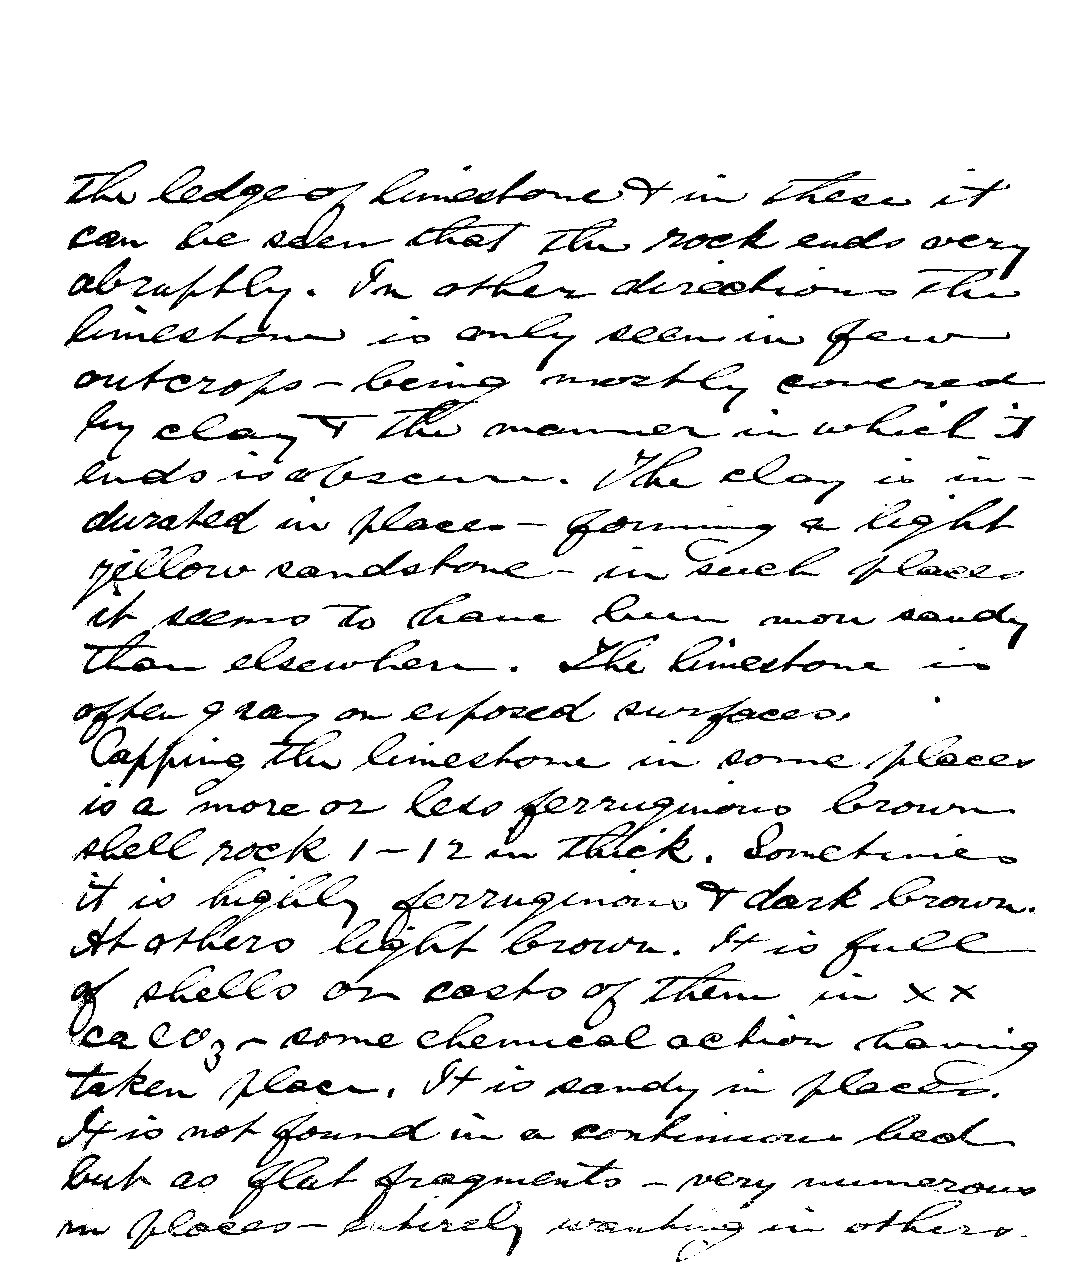 the ledge of limestone & in these it
can be seen that the rock ends very
abruptly. In other directions the
limestone is only seen in few
outcrops - being mostly covered
by clay & the manner in which it
ends is obscure. The clay is in-
durated in places - forming a light
yellow sandstone - in such places
it seems to have been more sandy
than elsewhere. The limestone is
often gray on exposed surfaces.
Capping the limestone in some places
is a more or less ferruginous brown
shell rock 1-12 in thick. Sometimes
it is highly ferruginous & dark brown.
At others light brown. It is full
of shells or casts of them in xx
CaCO3 - some chemical action having
taken place. It is sandy in places.
It is not found in a continuous bed
but as flat fragments - very numerous
in places - entirely wanting in others.